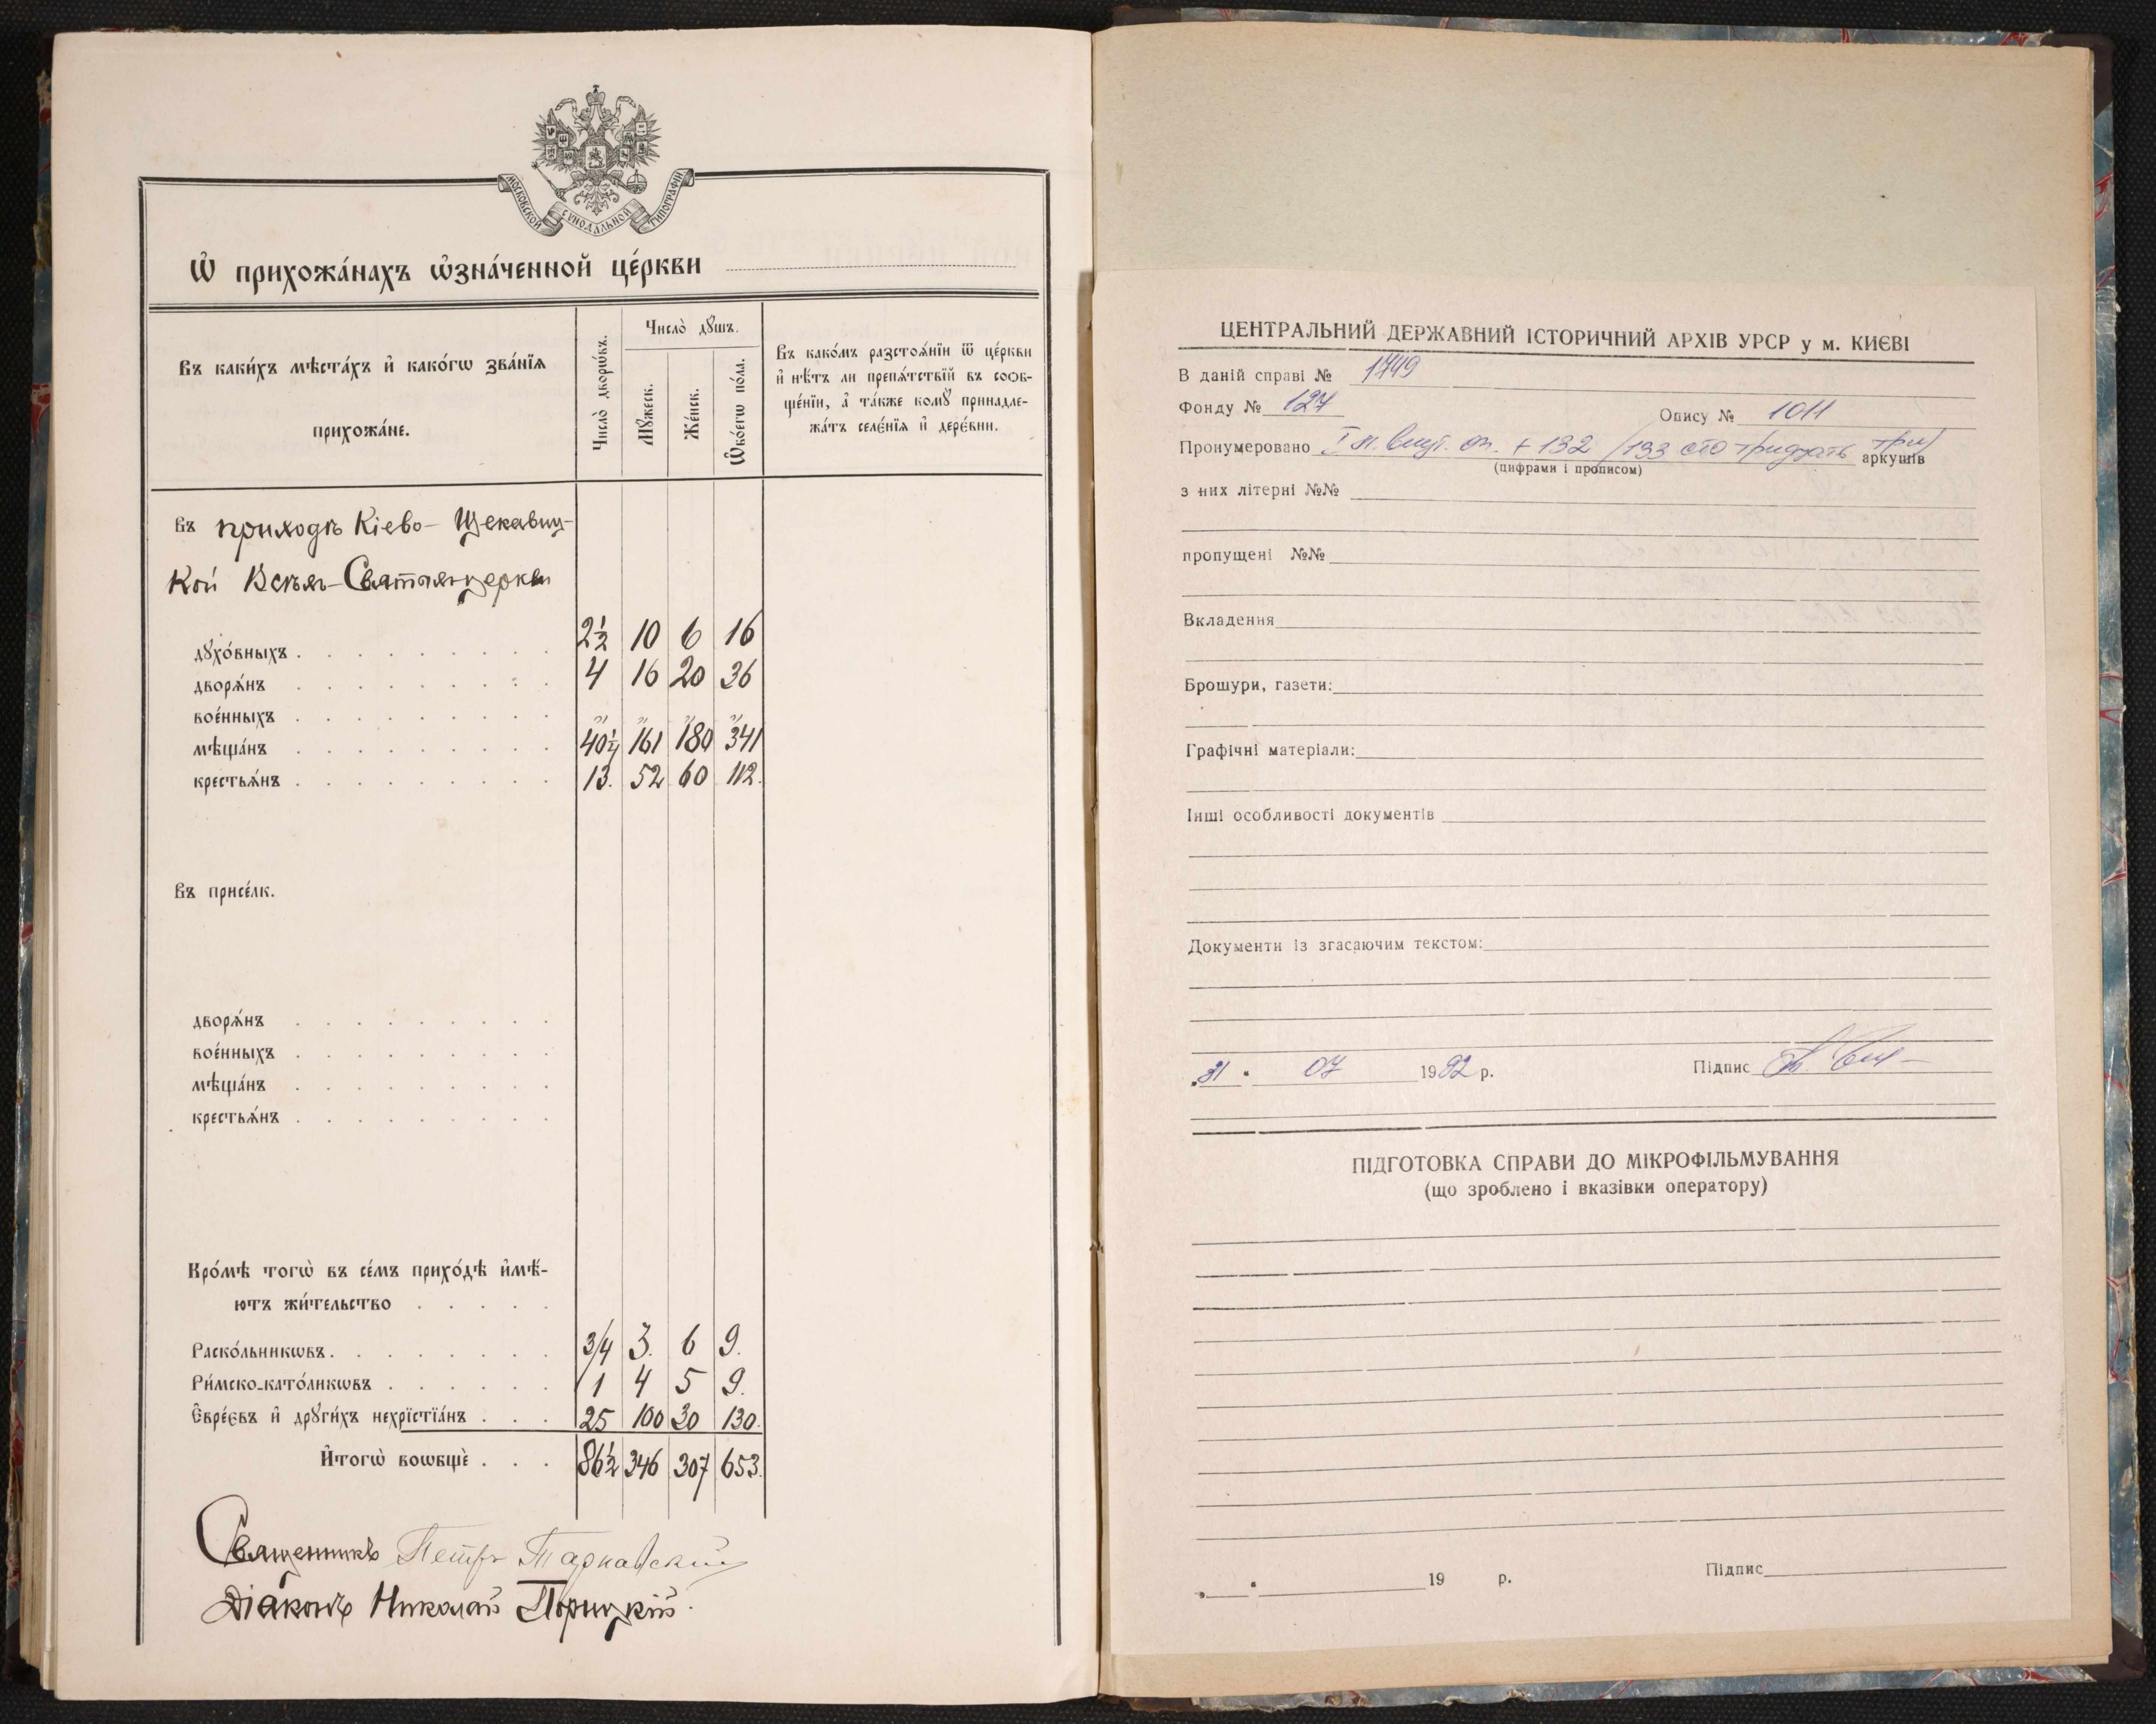 МОСКОВСКОЙ СѴНОДАЛЬНОЙ ТИПОГРАФІИ
Ѽ прихожа́нахъ ѡ҆зна́ченной це́ркви
Въ каки́хъ мѣста́хъ и҆ како́гѡ зва́нїѧ
прихожа́не.
Число̀ дворѡ́въ.
Число̀ дꙋ́шъ.
Мꙋ́жеск.
Же́нск.
Ѻ҆бо́егѡ по́ла.
Въ како́мъ разстоѧ́нїи ѿ це́ркви
и҆ нѣ́тъ ли препѧ́тствїй въ сооб-
ще́нїи, а҆ та́кже комꙋ̀ принадле-
жа́тъ селє́нїѧ и҆ дерє́вни.
Въ приходѣ Кіево-Щекавиц-
кой Всѣхъ-Святыхъ церкви
дꙋхо́вныхъ . . . 2½ 10 6 16
дворѧ́нъ . . . 4 16 20 36
вое́нныхъ . . . " " " "
мѣща́нъ . . . 40¼ 161 180 341
крестьѧ́нъ . . . 13. 52 60 112.
Въ присе́лк.
дворѧ́нъ . . .
вое́нныхъ . . .
мѣща́нъ . . .
крестьѧ́нъ . . .
Кро́мѣ тогѡ̀ въ се́мъ прихо́дѣ и҆мѣ́-
ютъ жи́тельство . . .
Раско́льникѡвъ . . . 3/4 3. 6 9.
Ри́мско-като́ликѡвъ . . . 1 4 5 9.
Є҆вре́євъ и҆ дрꙋги́хъ нехрїстїа́нъ . . . 25 100 30 130.
И҆тогѡ̀ воѡбщѐ . . . 86½ 346 307 653.
Священникъ Петръ Тарнавскій
Діаконъ Николай Порицкій.
ЦЕНТРАЛЬНИЙ ДЕРЖАВНИЙ ІСТОРИЧНИЙ АРХІВ УРСР у м. КИЄВІ
В даній справі № 1749
Фонду № 127 Опису № 1011
Пронумеровано І л. внут. оп. + 132 /133 сто тридцять три/ аркушів
(цифрами і прописом)
з них літерні №№
пропущені №№
Вкладення
Брошури, газети:
Графічні матеріали:
Інші особливості документів
Документи із згасаючим текстом:
„31“ 07 1992 р. Підпис
ПІДГОТОВКА СПРАВИ ДО МІКРОФІЛЬМУВАННЯ
(що зроблено і вказівки оператору)
„ “ 19 р. Підпис